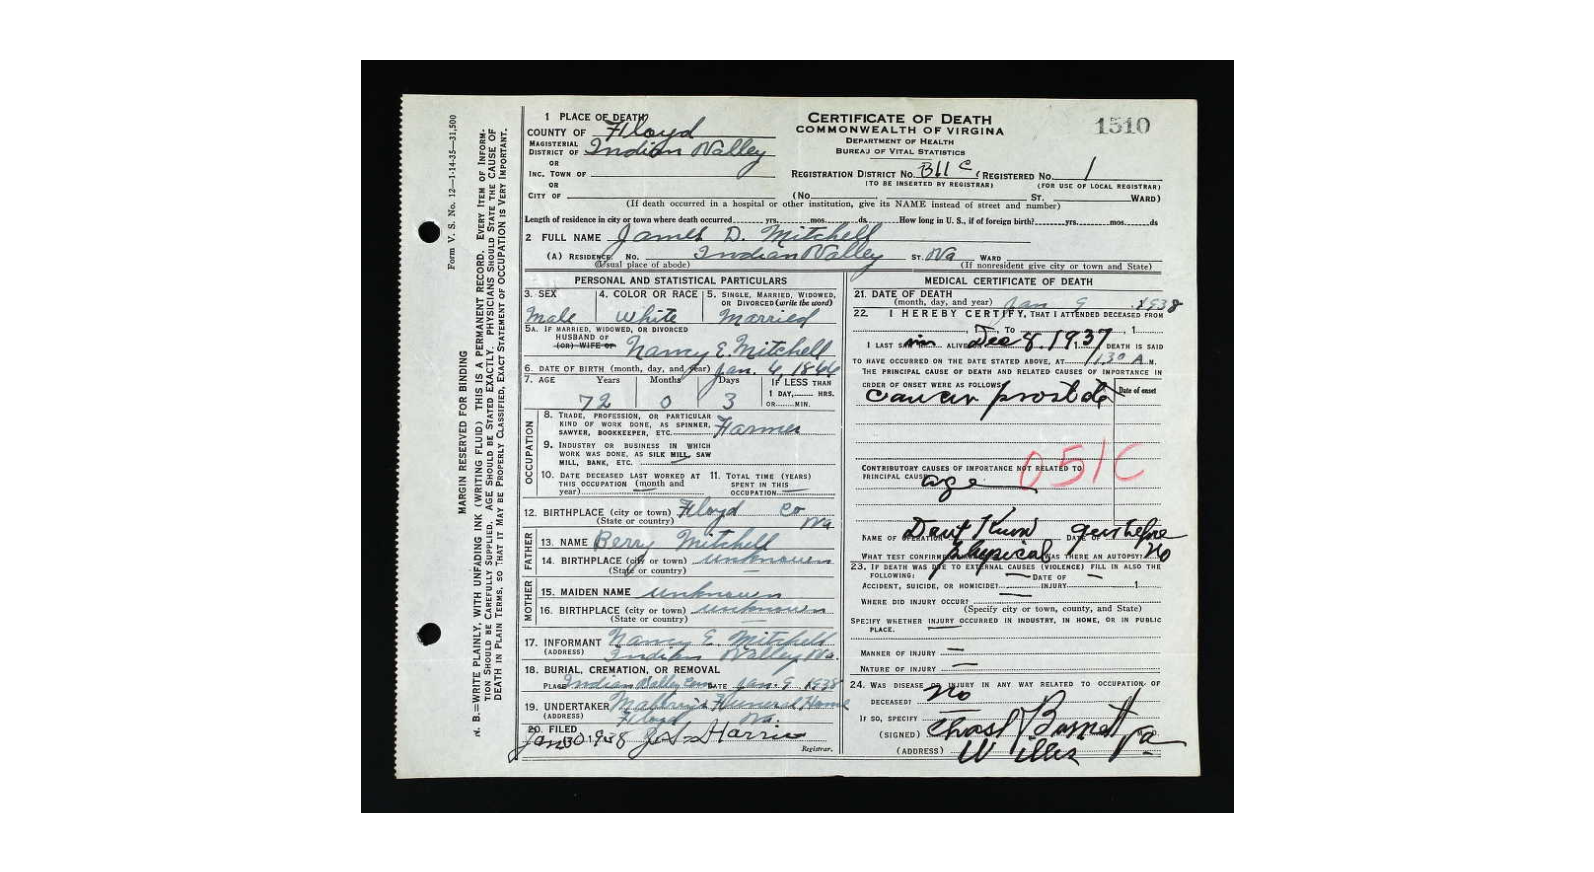 Form V. S. No. 12—1-14-35—31,500
MARGIN RESERVED FOR BINDING
N. B.—WRITE PLAINLY, WITH UNFADING INK (WRITING FLUID) THIS IS A PERMANENT RECORD. EVERY ITEM OF INFORM-
TION SHOULD BE CAREFULLY SUPPLIED. AGE SHOULD BE STATED EXACTLY. PHYSICIANS SHOULD STATE THE CAUSE OF
DEATH IN PLAIN TERMS, SO THAT IT MAY BE PROPERLY CLASSIFIED. EXACT STATEMENT OF OCCUPATION IS VERY IMPORTANT.
1 PLACE OF DEATH
COUNTY OF Floyd
MAGISTERIAL
DISTRICT OF Indian Valley
OR
INC. TOWN OF
OR
CITY OF
CERTIFICATE OF DEATH
COMMONWEALTH OF VIRGINIA
DEPARTMENT OF HEALTH
BUREAU OF VITAL STATISTICS
1510
REGISTRATION DISTRICT No. 311 C (REGISTERED No. 1
(TO BE INSERTED BY REGISTRAR) (FOR USE OF LOCAL REGISTRAR)
(No. ST. WARD)
(If death occurred in a hospital or other institution, give its NAME instead of street and number)
Length of residence in city or town where death occurred yrs. mos. ds. How long in U. S., if of foreign birth? yrs. mos. ds
2 FULL NAME James D. Mitchell
(A) RESIDENCE. No. Indian Valley ST. Va WARD
(Usual place of abode) (If nonresident give city or town and State)
PERSONAL AND STATISTICAL PARTICULARS
3. SEX 4. COLOR OR RACE 5. SINGLE, MARRIED, WIDOWED,
OR DIVORCED (write the word)
Male White Married
5A. IF MARRIED, WIDOWED, OR DIVORCED
HUSBAND OF
(OR) WIFE OF Nancy E. Mitchell
6. DATE OF BIRTH (month, day, and year) Jan. 6, 1866
7. AGE Years Months Days IF LESS THAN
1 DAY, HRS.
72 0 3 OR MIN.
OCCUPATION
8. TRADE, PROFESSION, OR PARTICULAR
KIND OF WORK DONE, AS SPINNER,
SAWYER, BOOKKEEPER, ETC. Farmer
9. INDUSTRY OR BUSINESS IN WHICH
WORK WAS DONE, AS SILK MILL, SAW
MILL, BANK, ETC.
10. DATE DECEASED LAST WORKED AT
THIS OCCUPATION (month and
year)
11. TOTAL TIME (YEARS)
SPENT IN THIS
OCCUPATION
12. BIRTHPLACE (city or town) Floyd Co
(State or country) Va
FATHER
13. NAME Berry Mitchell
14. BIRTHPLACE (city or town) unknown
(State or country)
MOTHER
15. MAIDEN NAME unknown
16. BIRTHPLACE (city or town) unknown
(State or country)
17. INFORMANT Nancy E. Mitchell
(ADDRESS) Indian Valley Va.
18. BURIAL, CREMATION, OR REMOVAL
PLACE Indian Valley Cem DATE Jan. 9, 1938
19. UNDERTAKER Funeral Home
(ADDRESS) Floyd Va.
20. FILED
Jan 30 1938 Harris
Registrar.
MEDICAL CERTIFICATE OF DEATH
21. DATE OF DEATH
(month, day, and year) Jan 9, 1938
22. I HEREBY CERTIFY, THAT I ATTENDED DECEASED FROM
, 1 , TO , 1
I LAST SAW him ALIVE ON Dec 8. 1937 DEATH IS SAID
TO HAVE OCCURRED ON THE DATE STATED ABOVE, AT 1:30 A M.
THE PRINCIPAL CAUSE OF DEATH AND RELATED CAUSES OF IMPORTANCE IN
ORDER OF ONSET WERE AS FOLLOWS: Date of onset
cancer prostate
051C
CONTRIBUTORY CAUSES OF IMPORTANCE NOT RELATED TO
PRINCIPAL CAUSE: age
NAME OF OPERATION DATE OF
WHAT TEST CONFIRMED Physical WAS THERE AN AUTOPSY? No
23. IF DEATH WAS DUE TO EXTERNAL CAUSES (VIOLENCE) FILL IN ALSO THE
FOLLOWING: — DATE OF —
ACCIDENT, SUICIDE, OR HOMICIDE? INJURY 1
WHERE DID INJURY OCCUR? —
(Specify city or town, county, and State)
SPECIFY WHETHER INJURY OCCURRED IN INDUSTRY, IN HOME, OR IN PUBLIC
PLACE. —
MANNER OF INJURY —
NATURE OF INJURY —
24. WAS DISEASE OR INJURY IN ANY WAY RELATED TO OCCUPATION OF
DECEASED? No
IF SO, SPECIFY
(SIGNED)
(ADDRESS) Willis Va